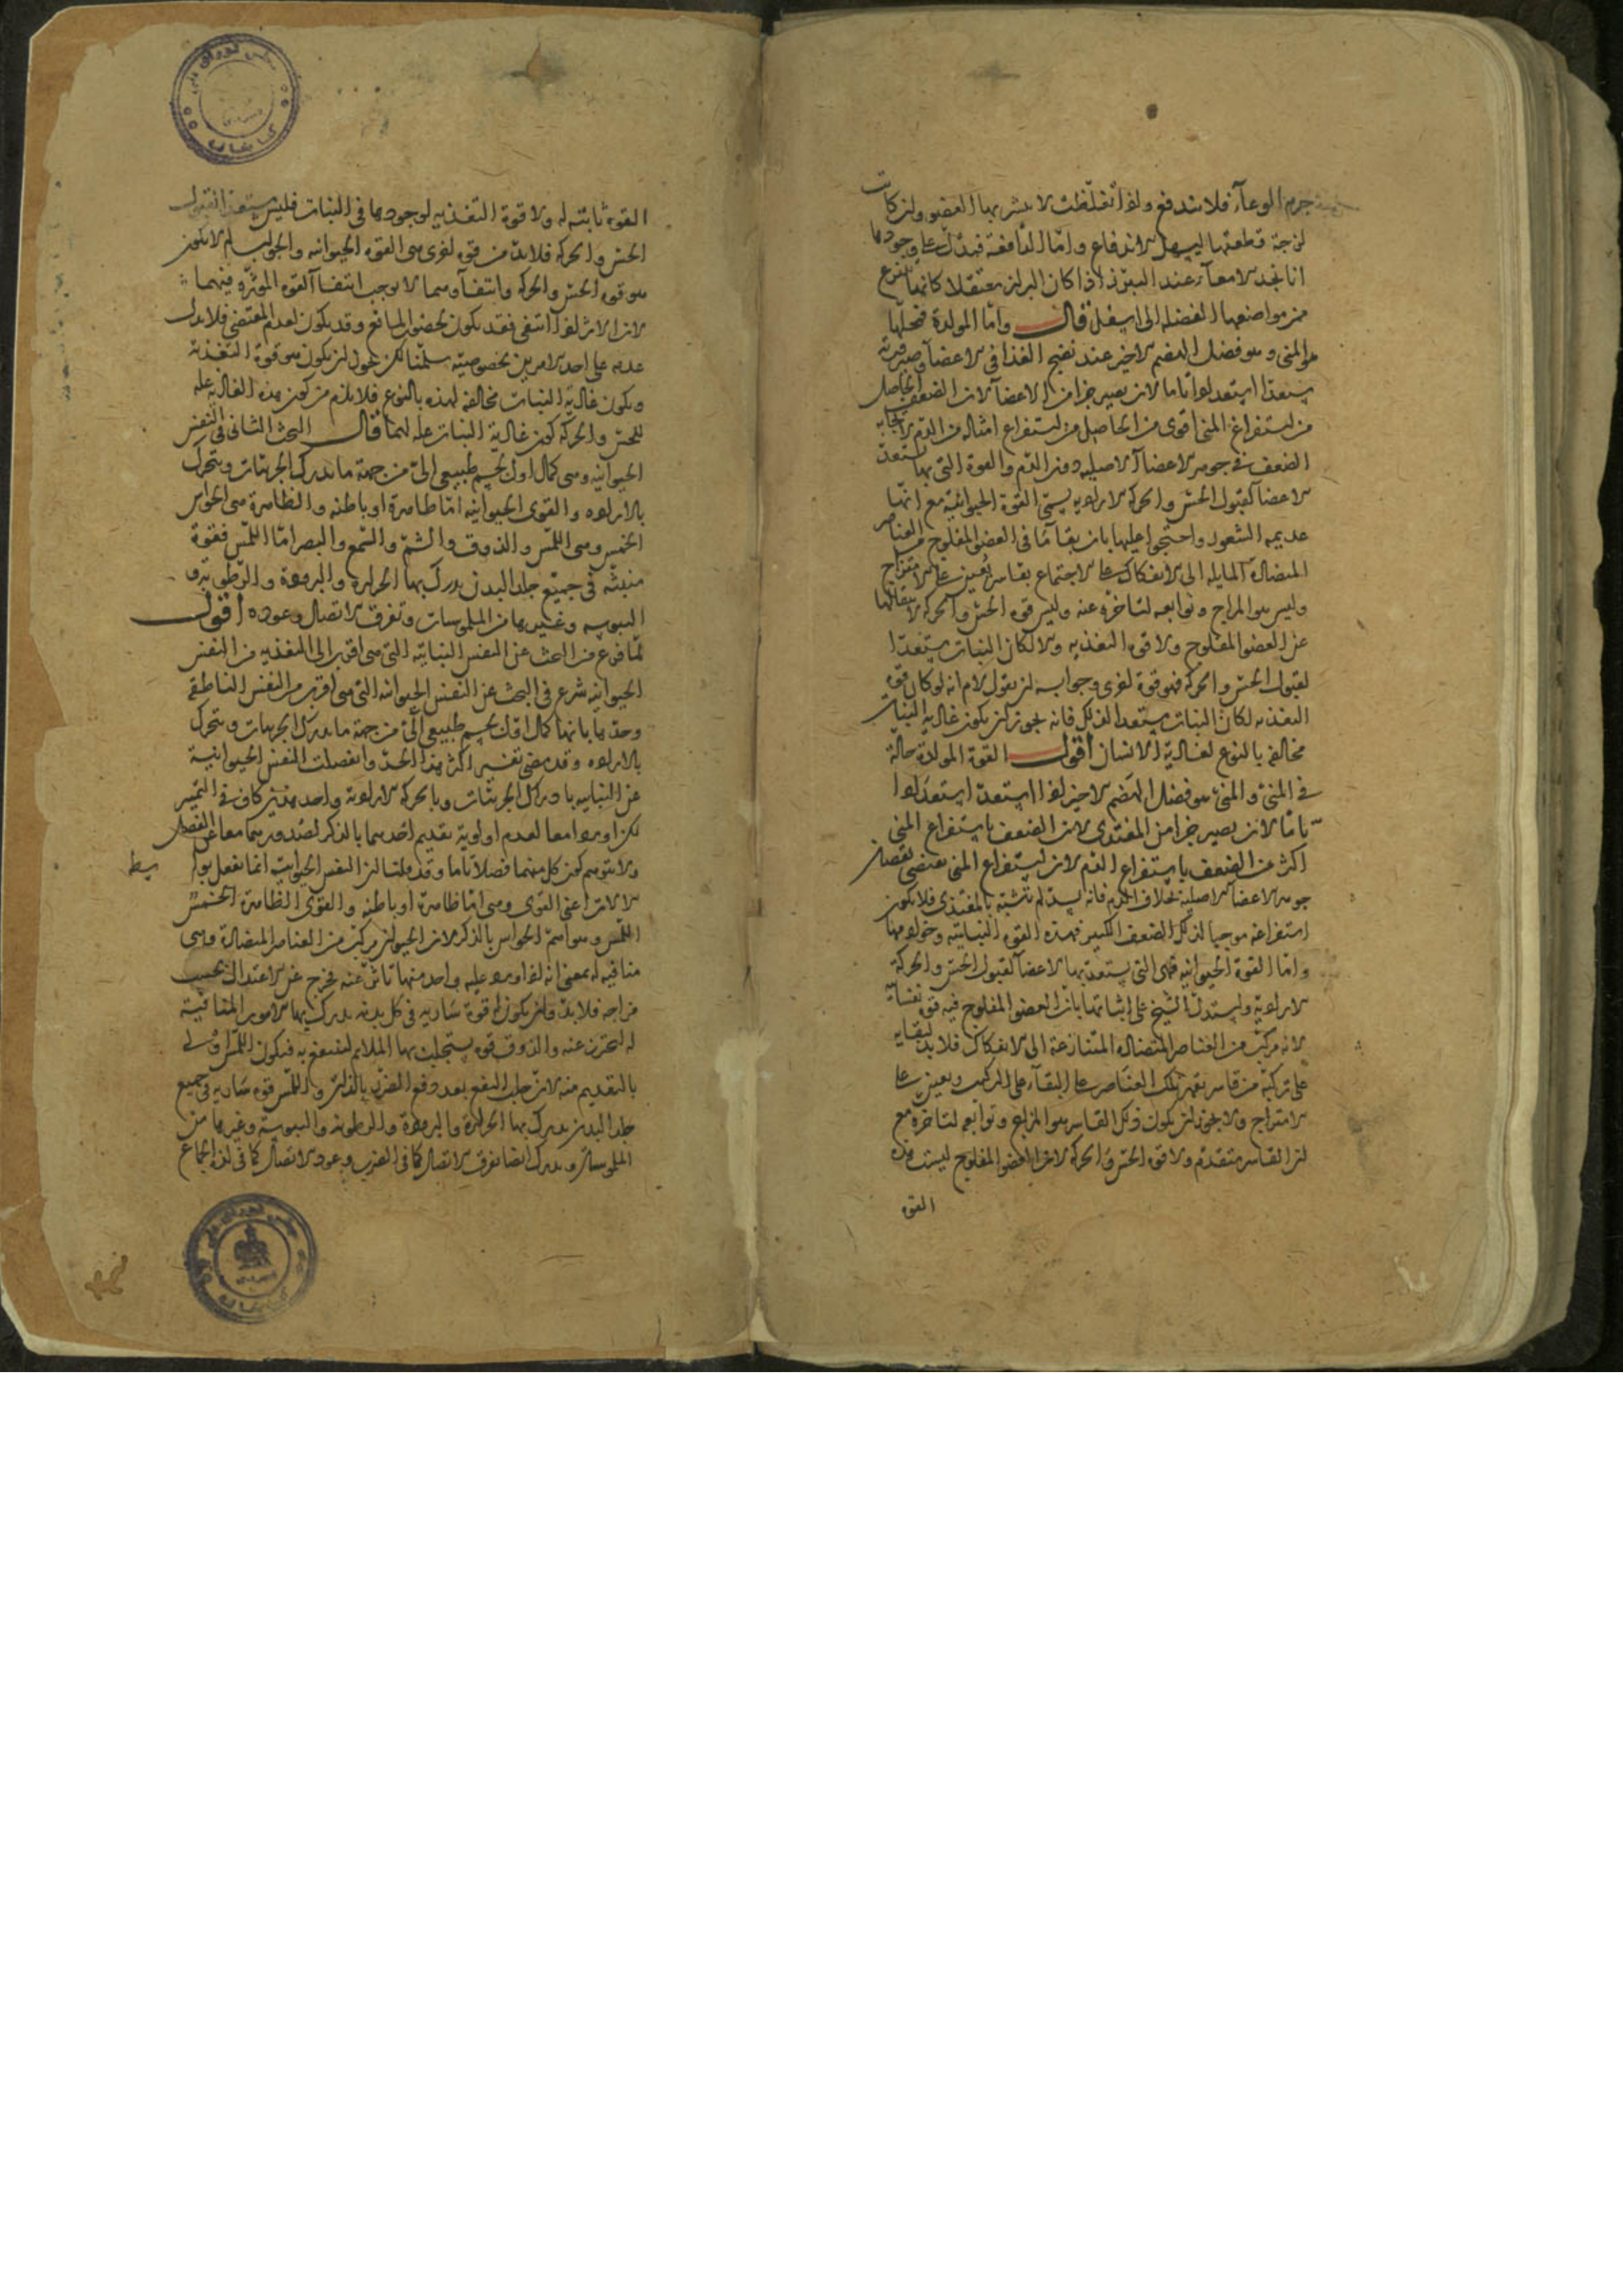 جرم الوعاء فلا يندفع ولذا تغلظت لا يتشربها العضو وان كانت
لزجة قطعتها ليسهل الاندفاع واما الدافعة فيدل على وجودها
انا نجد الامعاء عند التبرز اذا كان البراز معتقلا كانها تنزع
من مواضعها لدفع الفضله الى اسفل قال واما المولدة فمحلها
هو المنى وهو فضل الهضم الاخير عند نضج الغذا فى الاعضا وصيرورته
مستعدا استعدادا تاما لان يصير جزا من الاعضا لان الضعف الحاصل
من استفراغ المنى اقوى من الحاصل من استفراغ امثاله من الدم لايجابه
الضعف فى جوهر الاعضا الاصليه دون الدم والقوة التى بها تستعد
الاعضا لقبول الحس والحركة الارادية يسمى القوة الحيوانية مع انها
عديمه الشعور واحتجوا عليها بان بقاء ما فى العضو المفلوج من العناصر
المتضادة المايله الى الانفكاك على الاجتماع بقاسر يجبرها على الامتزاج
وليس هو المزاج وتوابعه لتاخره عنه وليس قوة الحس والحركة لانتفائها
عن العضو المفلوج ولا قوة التغذيه والا لكان النبات مستعدا
لقبول الحس والحركة فهو قوة اخرى وجوابه ان يقول لم انه لو كان قوة
التغذيه لكان النبات مستعدا لذلك فانه يجوز ان يكون غاذية النبات
مخالفة بالنوع لغاذية الانسان اقول القوة المولدة حالة
فى المنى والمنى هو فضل الهضم الاخير اذا استعد استعدادا
تاما لان يصير جزا من المغتذى لان الضعف باستفراغ المنى
اكثر من الضعف باستفراغ الدم لان استفراغ المنى يقتضى نقصان
جوهر الاعضا الاصلية بخلاف الدم فانه بعد لم يتشبه بالمغتذى فلا يكون
استفراغه موجبا لذلك الضعف الكثير فهذه القوى النباتية وخوادمها
واما القوة الحيوانيه فهى التى يستعد بها الاعضا لقبول الحس والحركة
الارادية واستدل الشيخ على اثباتها بان العضو المفلوج فيه قوة نفسانية
لانه مركب من العناصر المتضاده المتنازعة الى الانفكاك فلا بد لبقايه
على تركبه من قاسر يقهر تلك العناصر على البقاء على التركيب ويجبره على
الامتزاج ولا يجوز ان يكون ذلك القاسر هو المزاج وتوابعه لتاخره مع
ان القاسر متقدم ولا قوة الحس والحركة لان العضو المفلوج ليست هذه
القوه
القوه ثابته له ولا قوة التغذيه لوجودها فى النبات فليس مستعدا لقبول
الحس والحركه فلابد من قوه اخرى هى القوه الحيوانيه والجواب لم لا يكون
هو قوه الحس والحركه وانتفاوهما لا يوجب انتفا القوه الموثره فيهما
لان الاثر اذا انتفى فقد يكون لحضور المانع وقد يكون لعدم المقتضى فلا يدل
عدمه على احد الامرين بخصوصيته سلمنا لكن يجوز ان يكون هو قوة التغذية
ويكون غاذية النبات مخالفه لهذه بالنوع فلا يلزم من كون هذه الغاذيه علة
للحس والحركه كون غاذية النبات علة لهما قال البحث الثانى فى النفس
الحيوانيه وهى كمال اول لجسم طبيعى الى من جهة ما يدرك الجزئيات ويتحرك
بالاراده والقوى الحيوانيه اما ظاهرة او باطنه والظاهرة هى الحواس
الخمس وهى اللمس والذوق والشم والسمع والبصر اما اللمس فقوة
منبثه فى جميع جلد البدن يدرك بها الحرارة والبرودة والرطوبة و
اليبوسه وغيرها من الملموسات وتفرق الاتصال وعوده اقول
لما فرغ من البحث عن النفس النباتيه التى هى اقرب الى المغذيه من النفس
الحيوانيه شرع فى البحث عن النفس الحيوانيه التى هى اقرب من النفس الناطقة
وحدها بانها كمال اول لجسم طبيعى الى من جهة ما يدرك الجزئيات ويتحرك
بالاراده وقد مضى تفسير اكثر هذا الحد وانفصلت النفس الحيوانية
عن النباتيه بادراك الجزئيات وبالحركة الارادية واحد هذين كاف فى التميز
لكن اوردا معا لعدم اولوية تقديم احدهما بالذكر لصدورهما معا عن الفصل
ولا يتوهم كون كل منهما فصلا تاما وقد قلنا ان النفس الحيوانية انما تفعل بواسط
الالات اعنى القوى وهى اما ظاهرة او باطنه والقوى الظاهرة الخمس
اللمس وهو اهم الحواس بالذكر لان الحيوان مركب من العناصر المتضادة وهى
منافيه له بمعنى انه اذا ورد عليه واحد منها تاثر عنه فخرج عن الاعتدال بحسب
مزاجه فلا بد وان يكون له قوة سارية فى كل بدنه يدرك بها الامور المنافية
له ليحترز عنه والذوق قوه يستجلب بها الملايم لينتفع به فيكون اللمس اولى
بالتقديم منه لان جلب النفع بعد دفع الضرر بالذات واللمس قوه ساريه فى جميع
جلد البدن يدرك بها الحرارة والبرودة والرطوبه واليبوسة وغيرها من
الملموسات ويدرك ايضا تفرق الاتصال كما فى الضرب وعود الاتصال كما فى لذة الجماع